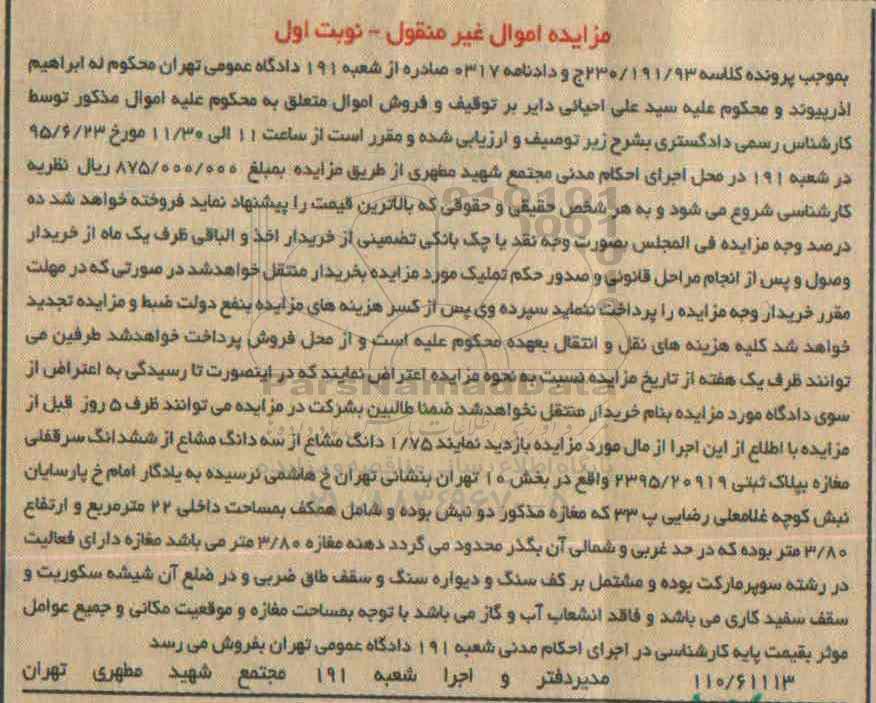 مزایده اموال غیر منقول - نوبت اول
بموجب پرونده کلاسه ۲۳۰/۱۹۱/۹۳ج و دادنامه ۰۳۱۷ صادره از شعبه ۱۹۱ دادگاه عمومی تهران محکوم له ابراهیم
اذرپیوند و محکوم علیه سید علی احیائی دایر بر توقیف و فروش اموال متعلق به محکوم علیه اموال مذکور توسط
کارشناس رسمی دادگستری بشرح زیر توصیف و ارزیابی شده و مقرر است از ساعت ۱۱ الی ۱۱/۳۰ مورخ ۹۵/۶/۲۳
در شعبه ۱۹۱ در محل اجرای احکام مدنی مجتمع شهید مطهری از طریق مزایده بمبلغ ۸۷۵/۰۰۰/۰۰۰ ریال نظریه
کارشناسی شروع می شود و به هر شخص حقیقی و حقوقی که بالاترین قیمت را پیشنهاد نماید فروخته خواهد شد ده
درصد وجه مزایده فی المجلس بصورت وجه نقد یا چک بانکی تضمینی از خریدار اخذ و الباقی ظرف یک ماه از خریدار
وصول و پس از انجام مراحل قانونی و صدور حکم تملیک مورد مزایده بخریدار منتقل خواهدشد در صورتی که در مهلت
مقرر خریدار وجه مزایده را پرداخت ننماید سپرده وی پس از کسر هزینه های مزایده بنفع دولت ضبط و مزایده تجدید
خواهد شد کلیه هزینه های نقل و انتقال بعهده محکوم علیه است و از محل فروش پرداخت خواهدشد طرفین می
توانند ظرف یک هفته از تاریخ مزایده نسبت به نحوه مزایده اعتراض نمایند که در اینصورت تا رسیدگی به اعتراض از
سوی دادگاه مورد مزایده بنام خریدار منتقل نخواهدشد ضمنا طالبین بشرکت در مزایده می توانند ظرف ۵ روز قبل از
مزایده با اطلاع از این اجرا از مال مورد مزایده بازدید نمایند ۱/۷۵ دانگ مشاع از سه دانگ مشاع از ششدانگ سرقفلی
مغازه بپلاک ثبتی ۲۳۹۵/۲۰۹۱۹ واقع در بخش ۱۰ تهران بنشانی تهران خ هاشمی نرسیده به یادگار امام خ پارسایان
نبش کوچه غلامعلی رضایی پ ۳۳ که مغازه مذکور دو نبش بوده و شامل همکف بمساحت داخلی ۲۲ مترمربع و ارتفاع
۳/۸۰ متر بوده که در حد غربی و شمالی آن بگذر محدود می گردد دهنه مغازه ۳/۸۰ متر می باشد مغازه دارای فعالیت
در رشته سوپرمارکت بوده و مشتمل بر کف سنگ و دیواره سنگ و سقف طاق ضربی و در ضلع آن شیشه سکوریت و
سقف سفید کاری می باشد و فاقد انشعاب آب و گاز می باشد با توجه بمساحت مغازه و موقعیت مکانی و جمیع عوامل
موثر بقیمت پایه کارشناسی در اجرای احکام مدنی شعبه ۱۹۱ دادگاه عمومی تهران بفروش می رسد
۱۱۰/۶۱۱۱۳ مدیردفتر و اجرا شعبه ۱۹۱ مجتمع شهید مطهری تهران
ParsNamadData